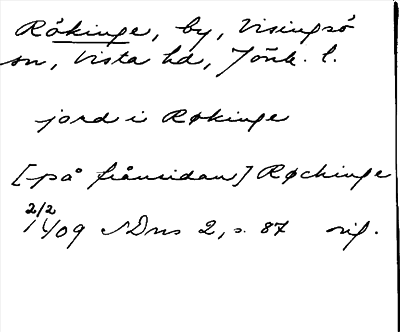 Rökinge, by, Visingsö
sn, Vista hd, Jönk. l.
jord i Røkinge
[på frånsidan] Røchinge
2/2
1409 SDns 2, s. 87 orig.